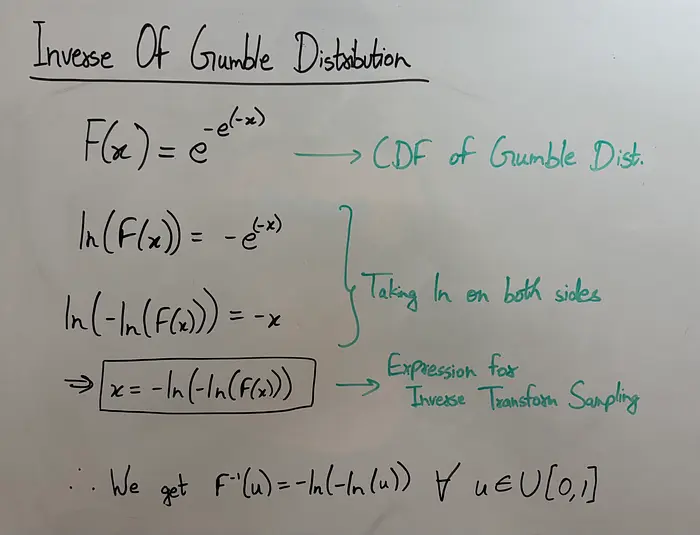 Inverse Of Gumble Distribution
F(x) = e^{-e^{(-x)}} → CDF of Gumble Dist.
ln(F(x)) = -e^{(-x)}
Taking ln on both sides
ln(-ln(F(x))) = -x
⇒ x = -ln(-ln(F(x))) → Expression for
Inverse Transform Sampling
∴ We get F⁻¹(u) = -ln(-ln(u)) ∀ u ∈ U[0,1]